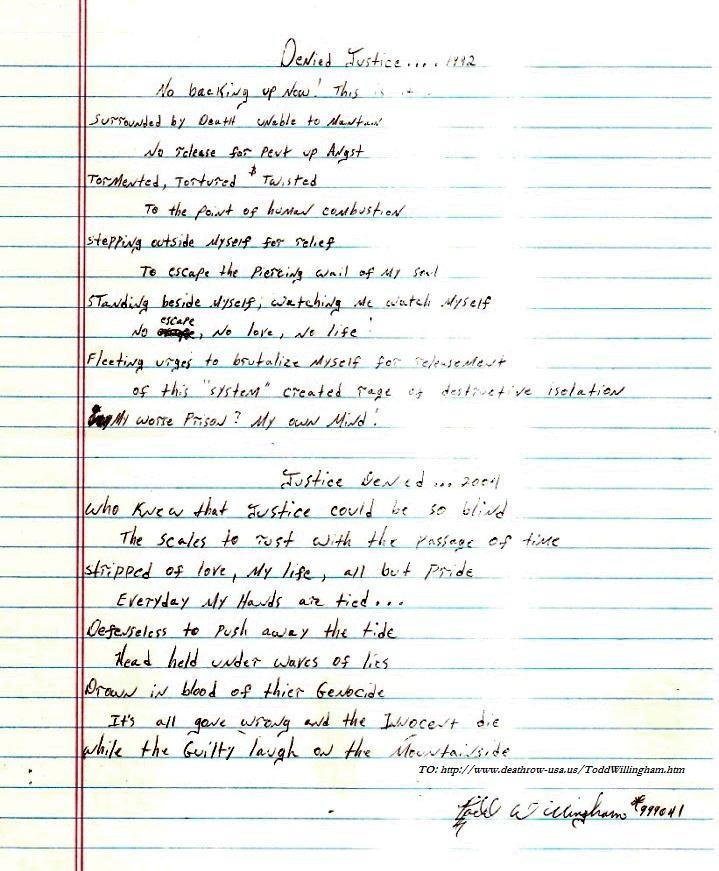 Denied Justice.... 1992
No backing up Now! This is it.
Surrounded by Death unable to Mantain
No release for pent up Angst
Tormented, Tortured & Twisted
To the point of human combustion
stepping outside Myself for relief
To escape the Piercing wail of My soul
Standing beside Myself, watching Me watch Myself
No escape, No love, No life!
Fleeting urges to brutalize Myself for releasement
of this "system" created rage of destructive isolation
My worse Prison? My own Mind!
Justice Denied... 2004
who knew that Justice could be so blind
The scales to rust with the passage of time
stripped of love, My life, all but Pride
Everyday My Hands are tied...
Defenseless to push away the tide
Head held under waves of lies
Drown in blood of thier Genocide
It's all gone wrong and the Innocent die
while the Guilty laugh on the Mountainside
TO: http://www.deathrow-usa.us/ToddWillingham.htm
Todd Willingham #999041